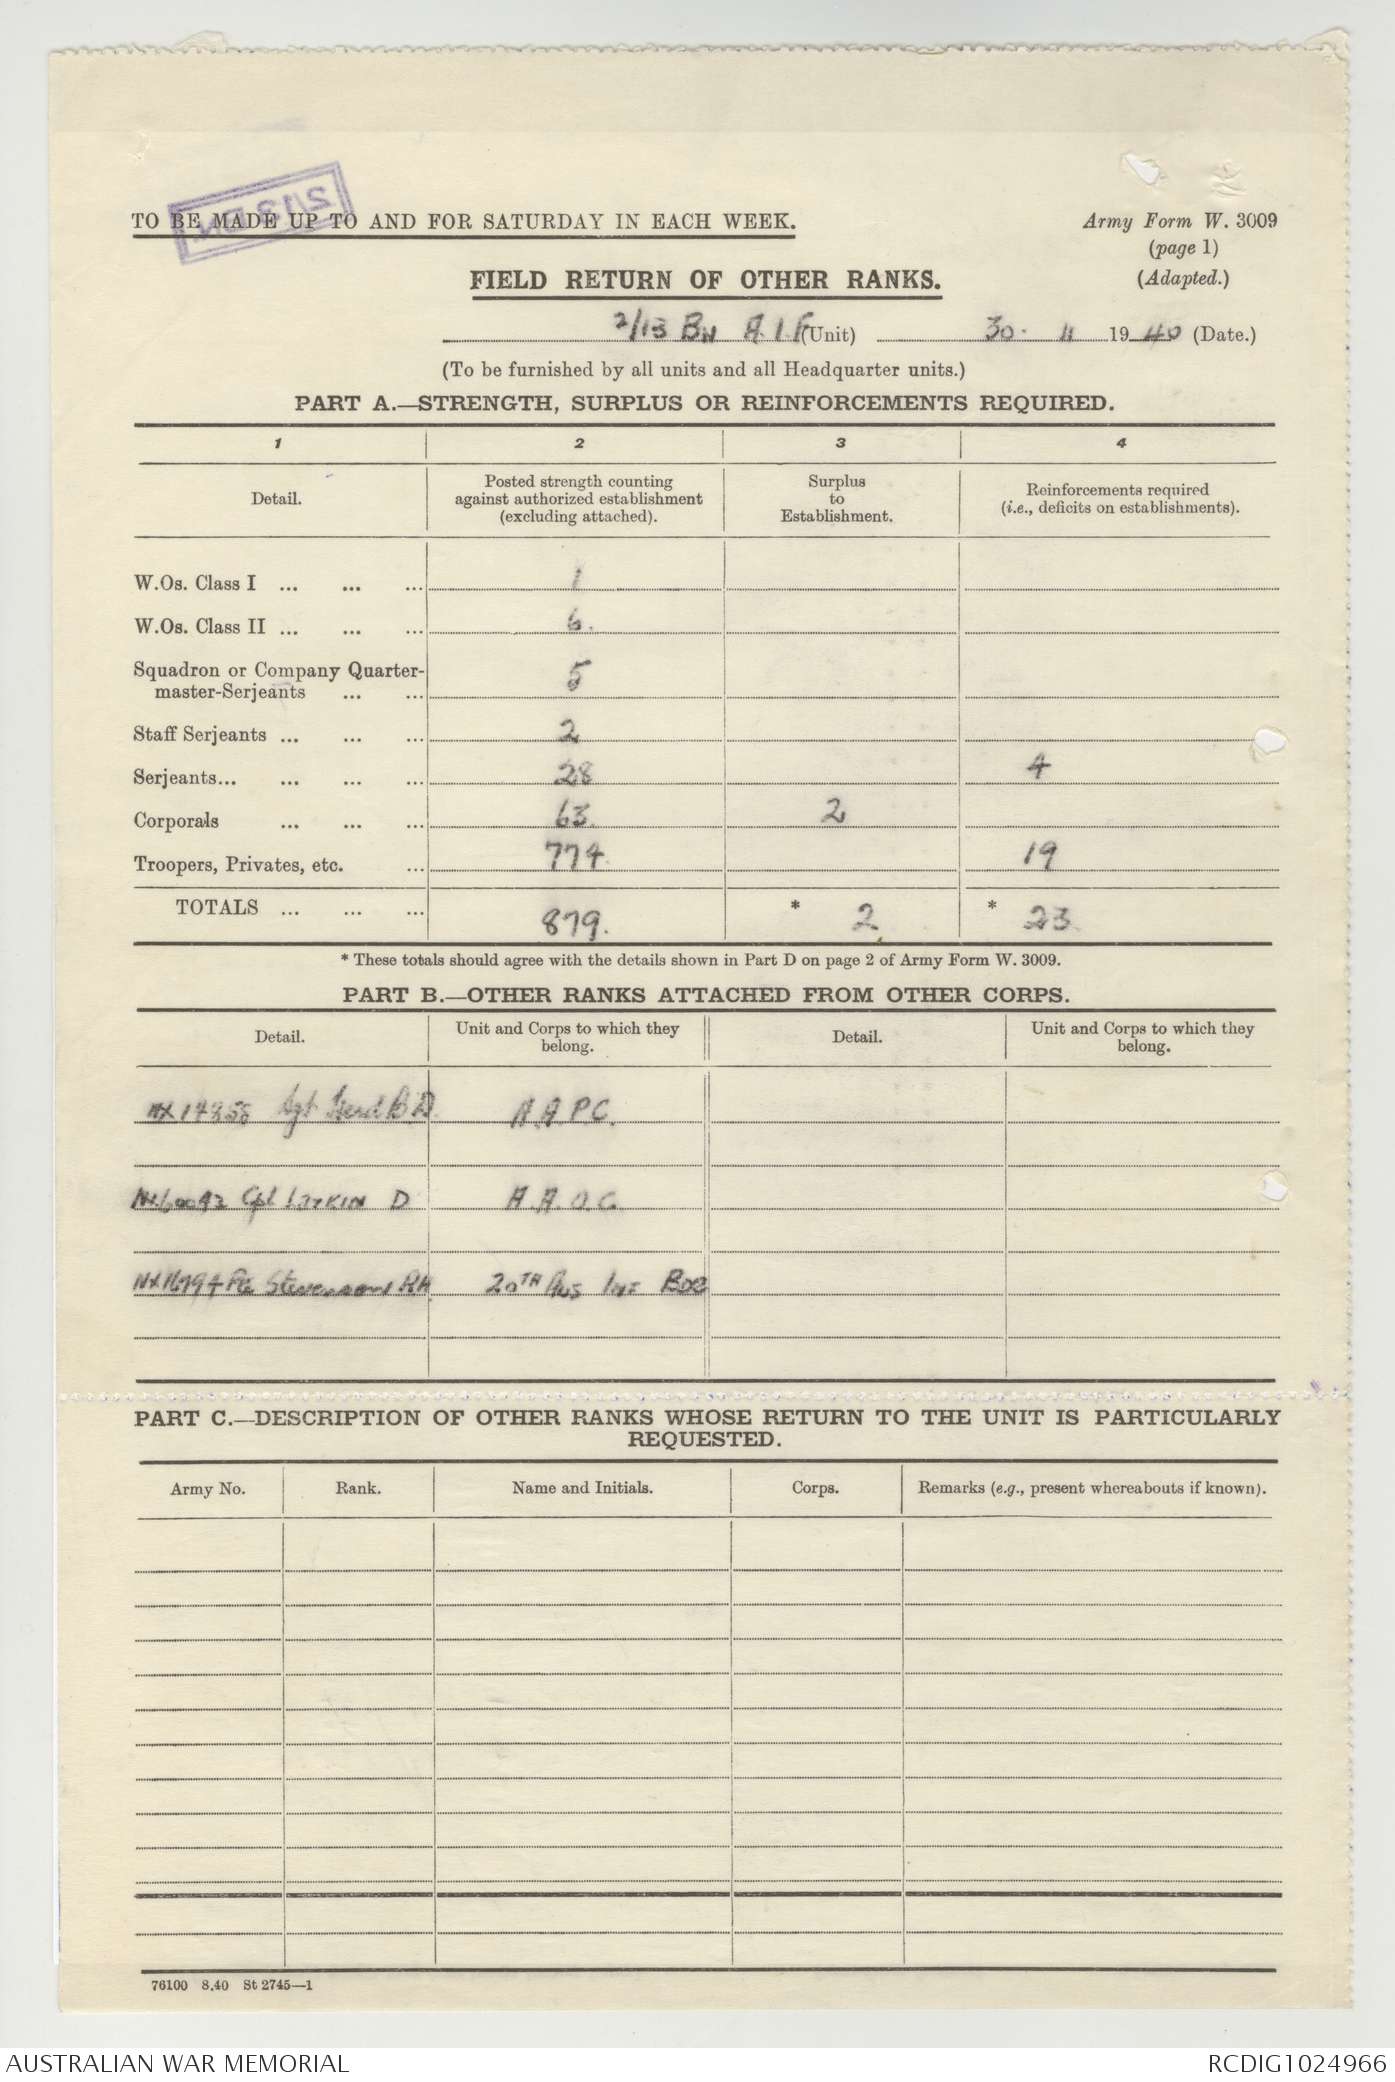 2/13 BN.
TO BE MADE UP TO AND FOR SATURDAY IN EACH WEEK.
Army Form W. 3009
(page 1)
(Adapted.)
FIELD RETURN OF OTHER RANKS.
2/13 BN A.I.F (Unit) 30. 11 1940 (Date.)
(To be furnished by all units and all Headquarter units.)
PART A.—STRENGTH, SURPLUS OR REINFORCEMENTS REQUIRED.
1 2 3 4
Detail.
Posted strength counting against authorized establishment (excluding attached).
Surplus to Establishment.
Reinforcements required (i.e., deficits on establishments).
W.Os. Class I ... ... ... 1
W.Os. Class II ... ... ... 6.
Squadron or Company Quarter-
master-Serjeants ... ... 5
Staff Serjeants ... ... ... 2
Serjeants... ... ... ... 28 4
Corporals ... ... ... 63. 2
Troopers, Privates, etc. ... 774. 19
TOTALS ... ... ... 879. * 2 * 23
* These totals should agree with the details shown in Part D on page 2 of Army Form W. 3009.
PART B.—OTHER RANKS ATTACHED FROM OTHER CORPS.
Detail. Unit and Corps to which they belong. Detail. Unit and Corps to which they belong.
Sgt B.D. A.A.P.C.
Cpl Larkin D A.A.O.C.
Pte Stevenson RH 20TH Aus Inf Bde
PART C.—DESCRIPTION OF OTHER RANKS WHOSE RETURN TO THE UNIT IS PARTICULARLY
REQUESTED.
Army No. Rank. Name and Initials. Corps. Remarks (e.g., present whereabouts if known).
76100 8.40 St 2745—1
AUSTRALIAN WAR MEMORIAL
RCDIG1024966